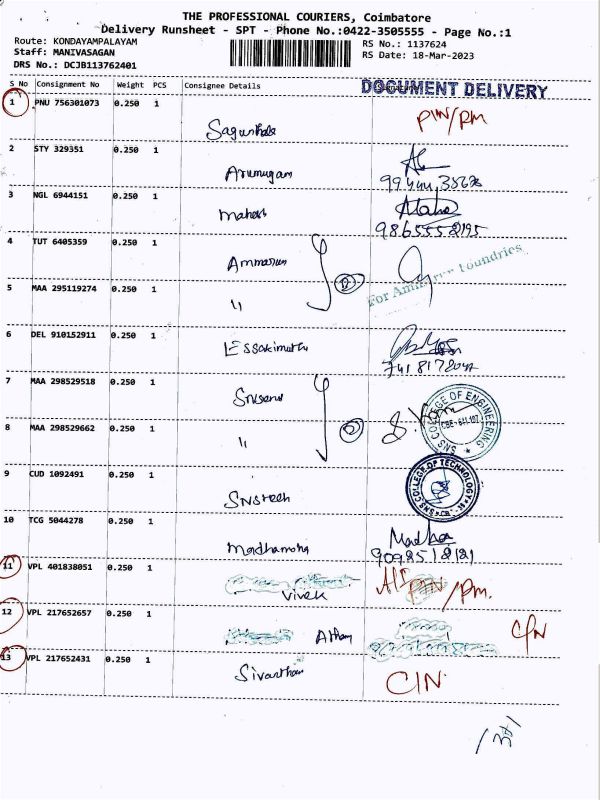 THE PROFESSIONAL COURIERS, Coimbatore
Delivery Runsheet - SPT - Phone No.:0422-3505555 - Page No.:1
Route: KONDAYAMPALAYAM RS No.: 1137624
Staff: MANIVASAGAN RS Date: 18-Mar-2023
DRS No.: DCJB113762401
S No Consignment No Weight PCS Consignee Details DOCUMENT DELIVERY
1 PNU 756301073 0.250 1 PIN/PM
2 STY 329351 0.250 1 Arumugam
3 NGL 6944151 0.250 1 Mahesh
9865552195
4 TUT 6405359 0.250 1
For Foundries
5 MAA 295119274 0.250 1 "
6 DEL 910152911 0.250 1 Essakimuthu
7 MAA 298529518 0.250 1
SNS COLLEGE OF ENGINEERING
CBE-641 107
8 MAA 298529662 0.250 1 "
9 CUD 1092491 0.250 1 SNS tech
SNS COLLEGE OF TECHNOLOGY
10 TCG 5044278 0.250 1 Madha
11 VPL 401838051 0.250 1 Vivek /PM.
12 VPL 217652657 0.250 1 C/N
13 VPL 217652431 0.250 1 C/N